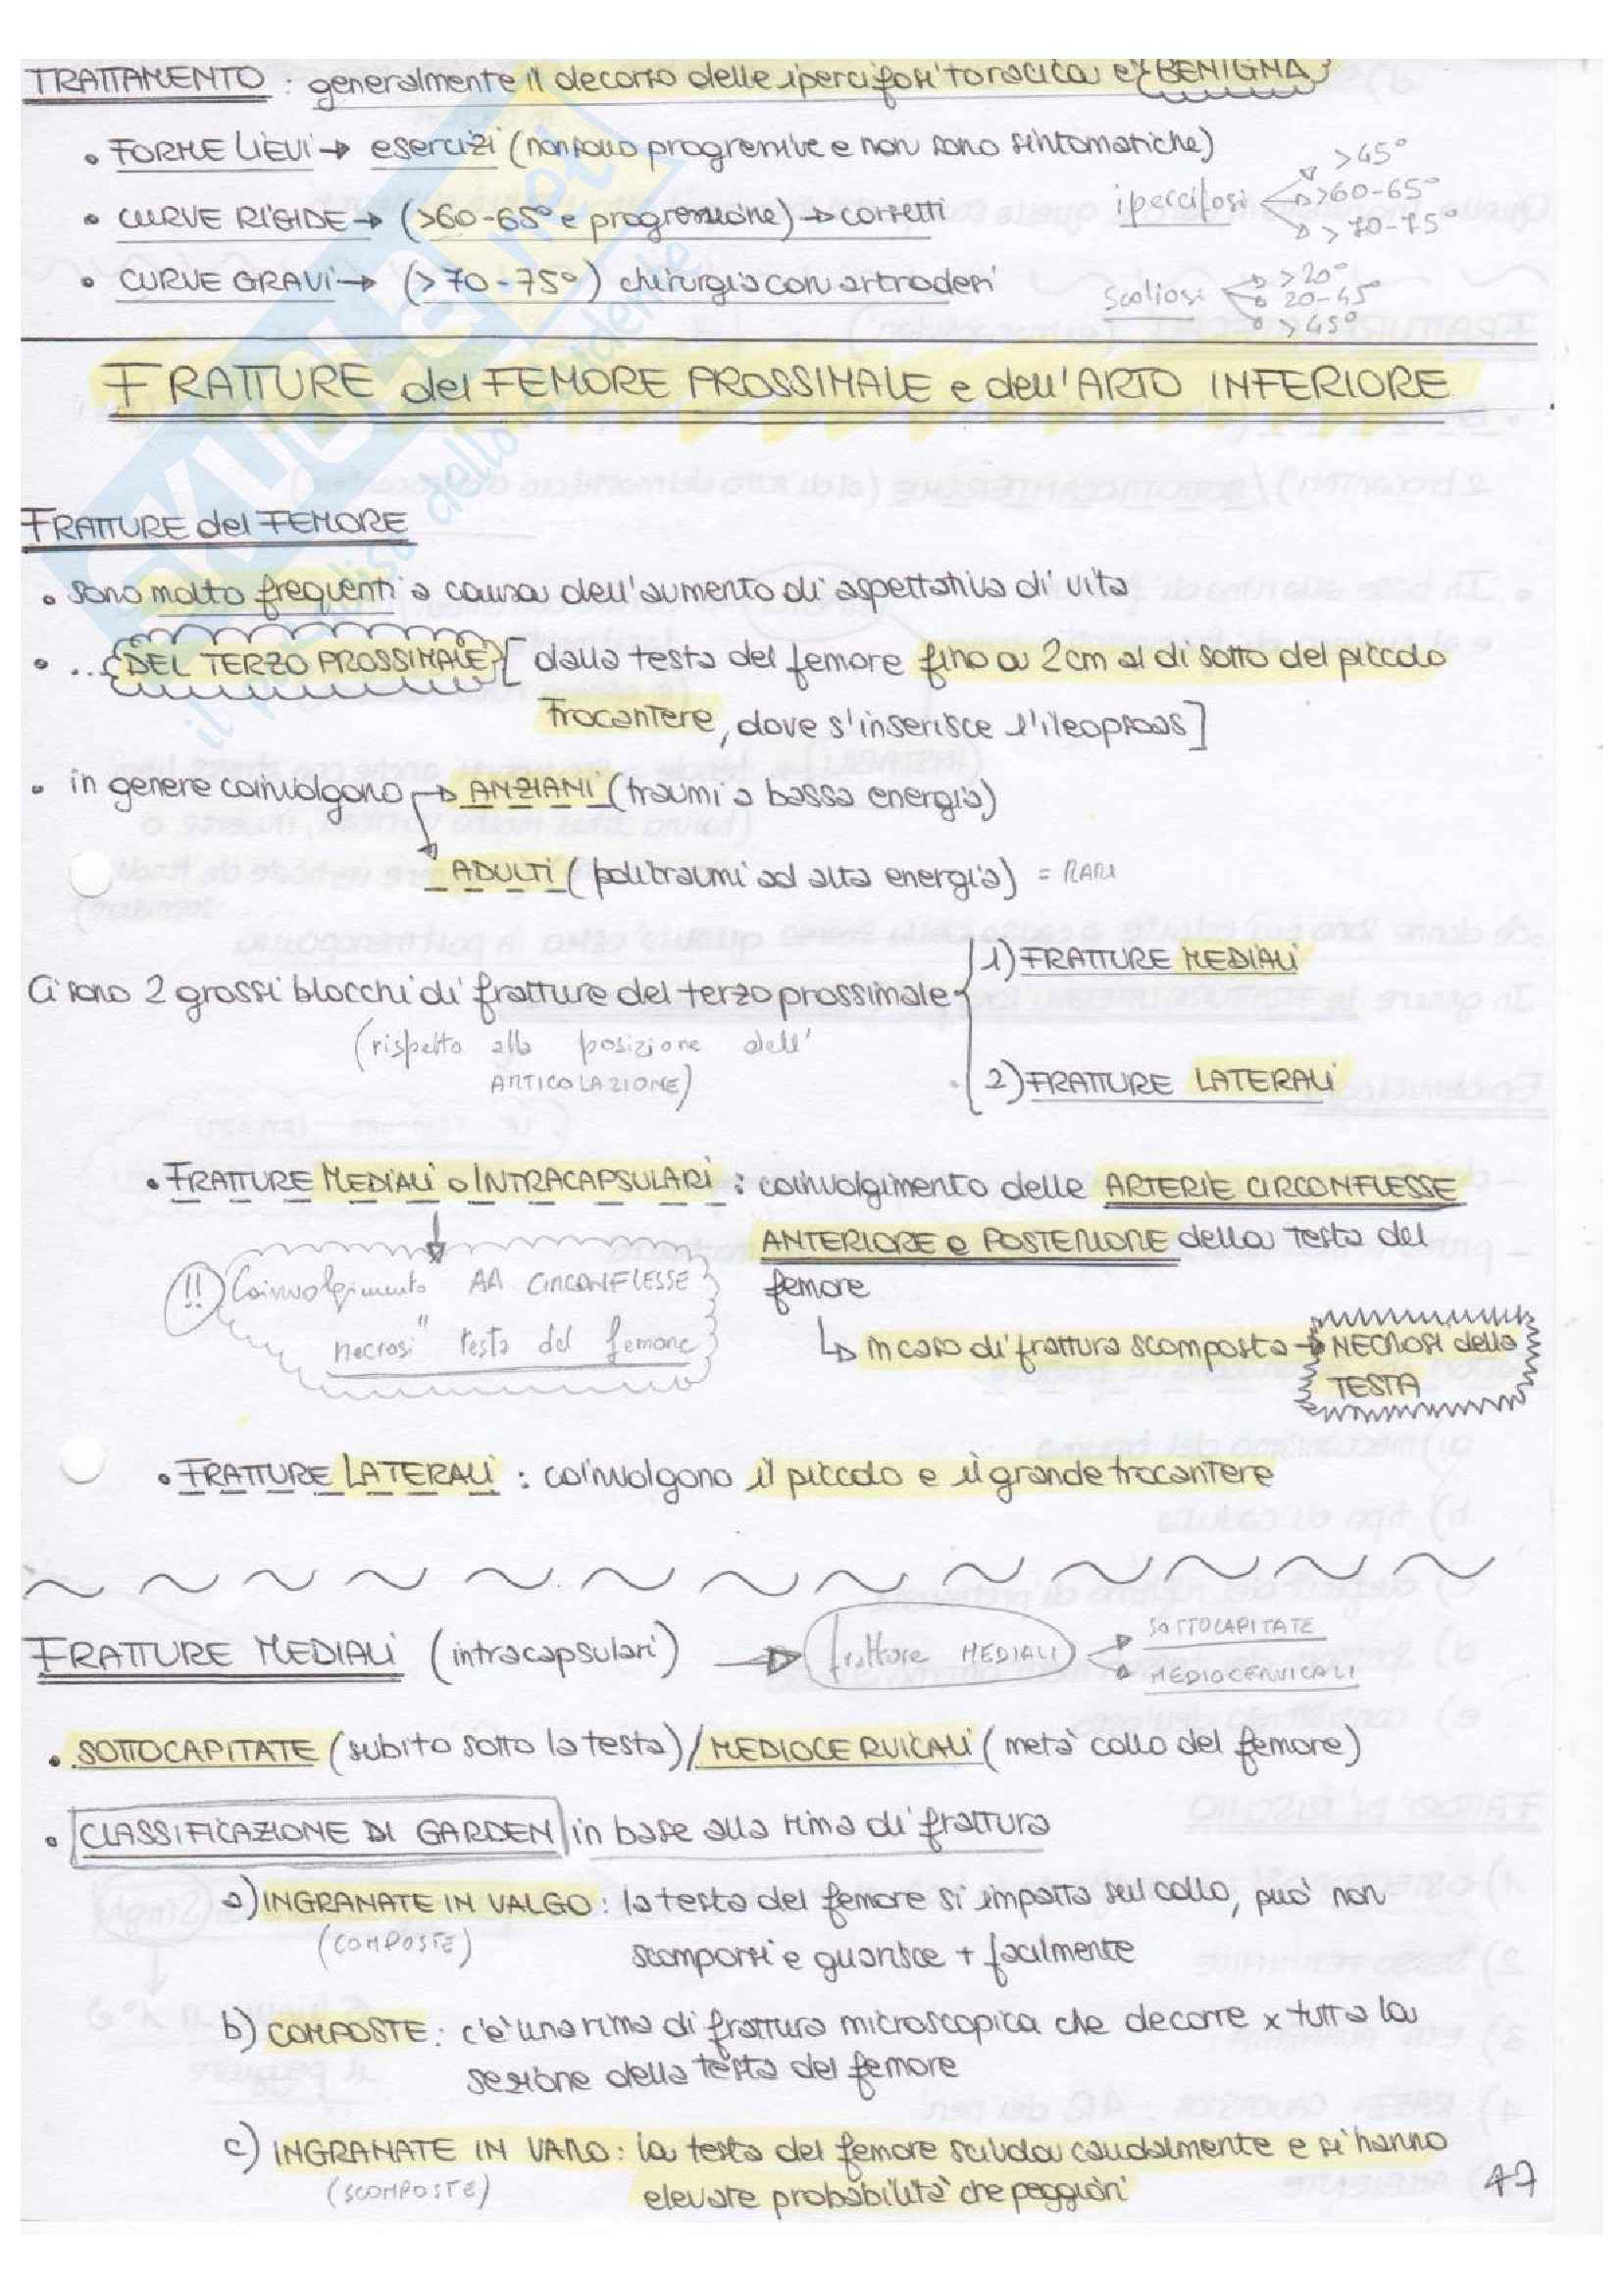 TRATTAMENTO : generalmente il decorso delle ipercifosi toracica e' BENIGNA
• FORME LIEVI → esercizi (non sono progressive e non sono sintomatiche)
• CURVE RIGIDE → (>60-65° e progressione) → corsetti
ipercifosi >45°
>60-65°
> 70-75°
• CURVE GRAVI → (> 70-75°) chirurgia con artrodesi
scoliosi >20°
20-45°
>45°
FRATTURE del FEMORE PROSSIMALE e dell'ARTO INFERIORE
FRATTURE del FEMORE
• sono molto frequenti a causa dell'aumento di aspettativa di vita
• ... DEL TERZO PROSSIMALE [ dalla testa del femore fino a 2 cm al di sotto del piccolo
trocantere, dove s'inserisce l'ileopsoas]
• in genere coinvolgono → ANZIANI (traumi a bassa energia)
ADULTI (politraumi ad alta energia) = RARI
1) FRATTURE MEDIALI
Ci sono 2 grossi blocchi di fratture del terzo prossimale
(rispetto alla posizione dell'
ARTICOLAZIONE)
2) FRATTURE LATERALI
• FRATTURE MEDIALI o INTRACAPSULARI : coinvolgimento delle ARTERIE CIRCONFLESSE
ANTERIORE e POSTERIORE della testa del
femore
!! Coinvolgimento AA CIRCONFLESSE
necrosi" testa del femore
↳ in caso di frattura scomposta → NECROSI della
TESTA
• FRATTURE LATERALI : coinvolgono il piccolo e il grande trocantere
FRATTURE MEDIALI (intracapsulari) → fratture MEDIALI → SOTTOCAPITATE
→ MEDIOCERVICALI
• SOTTOCAPITATE (subito sotto la testa) / MEDIOCERVICALI (meta' collo del femore)
• CLASSIFICAZIONE DI GARDEN in base alla rima di frattura
a) INGRANATE IN VALGO : la testa del femore si impatta sul collo, puo' non
(COMPOSTE) scomporsi e guarisce + facilmente
b) COMPOSTE : c'e' una rima di frattura microscopica che decorre x tutta la
sezione della testa del femore
c) INGRANATE IN VARO : la testa del femore scivola caudalmente e si hanno
(SCOMPOSTE) elevate probabilita' che peggiori
47
SKUOLA.net
il paradiso dello studente